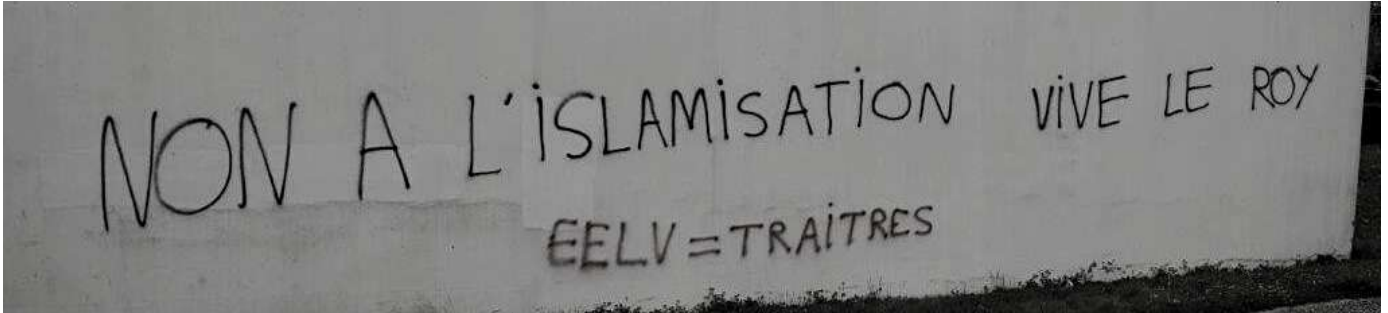 NON A L'iSLAMiSATiON ViVE LE ROY
EELV=TRAiTRES